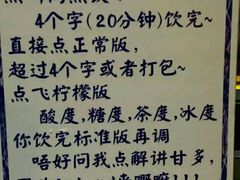 4个字(20分钟)饮完~
直接点正常版,
超过4个字或者打包~
点飞柠檬版
酸度,糖度,茶度,冰度
你饮完标准版再调
唔好问我点解讲甘多,
嘛!!!